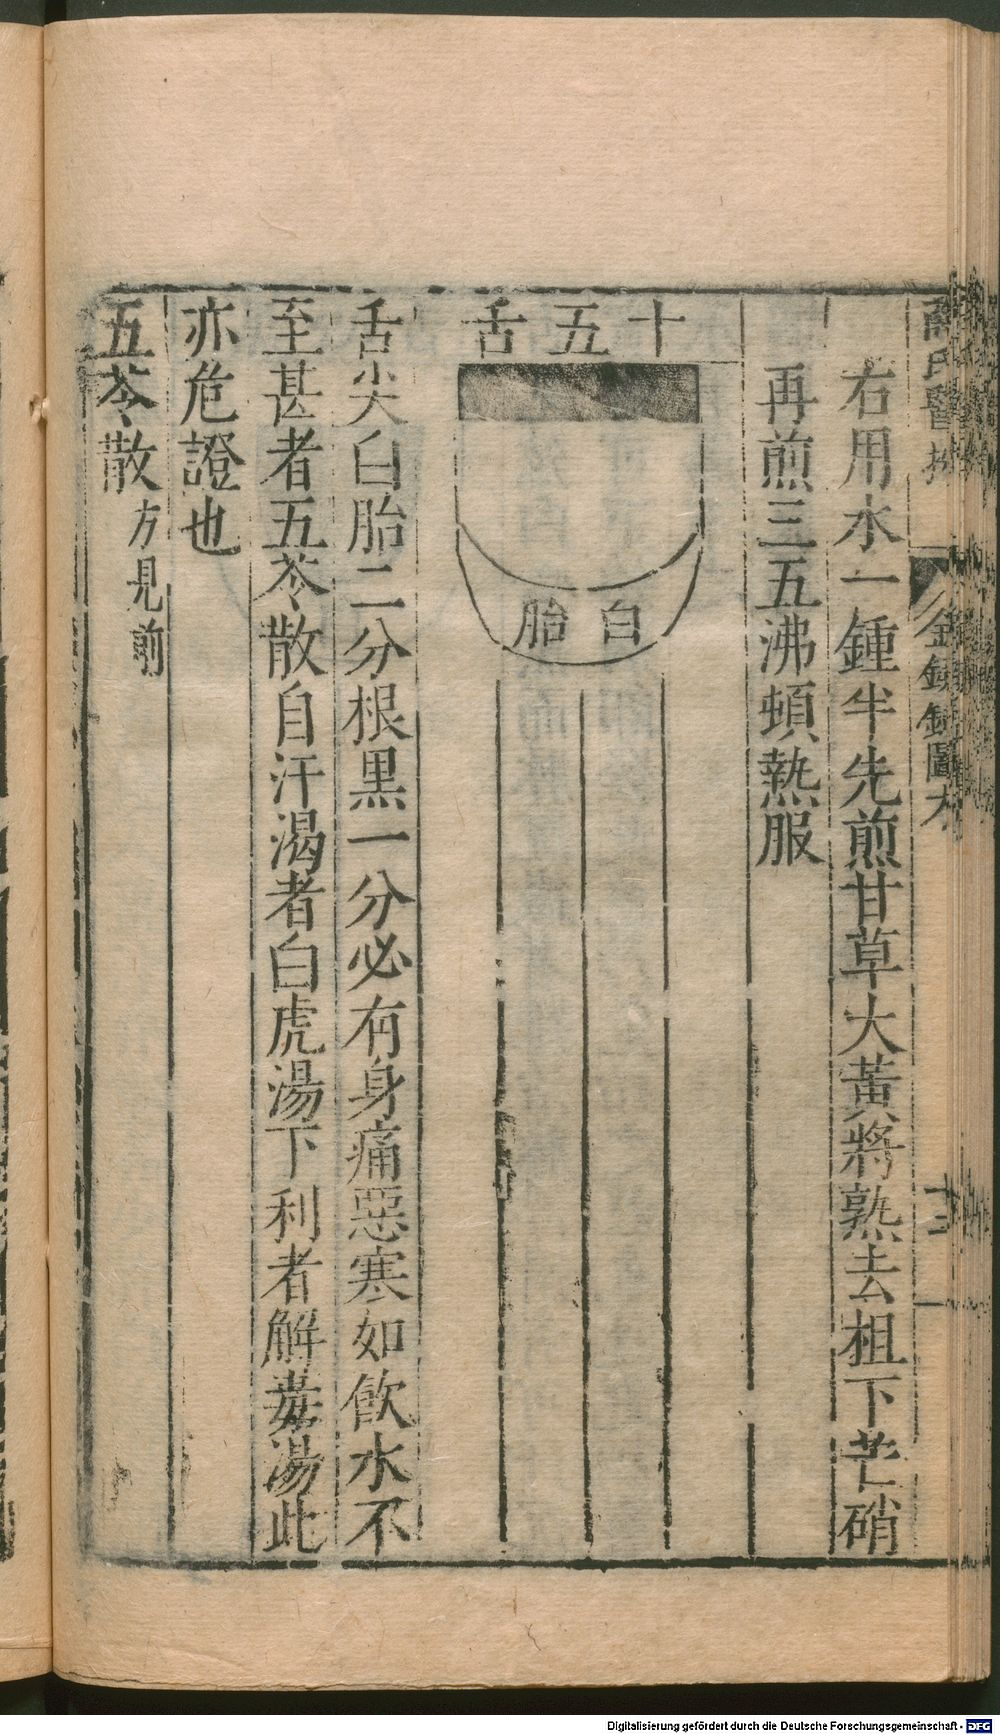 薛氏醫按
金鏡錄圖本
右用水一鍾半先煎甘草大黃將熟去柤下芒硝
再煎三五沸頓熱服
十五舌
白胎
舌尖白胎二分根黑一分必有身痛惡寒如飲水不
至甚者五苓散自汗渴者白虎湯下利者解毒湯此
亦危證也
五苓散方見前
Digitalisierung gefördert durch die Deutsche Forschungsgemeinschaft - DFG